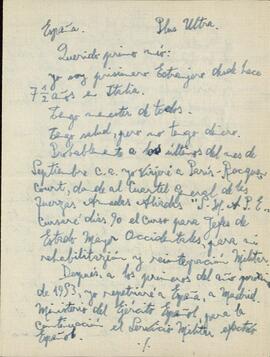 España. Plus Ultra.
Querido primo mío:
yo soy prisionero Extranjero desde hace
7 1/2 años en Italia.
Tengo menester de todos.
Tengo salud, pero no tengo dinero.
Probablemente a los últimos del mes de
Septiembre c.a. yo viajaré a París-Rocquen
court, donde al Cuartel General de las
Fuerzas Armadas Aliadas "S.H.A.P.E."
cursaré días 90 el curso para Jefes de
Estado Mayor Occidentales, para mi
rehabilitación y reintegración Militar.
Después, a los primeros del año
1953, yo repatriaré a España, a Madrid.
Ministerio del Ejército Español, para la
continuación el Servicio Militar efectivo
Español.
-1-